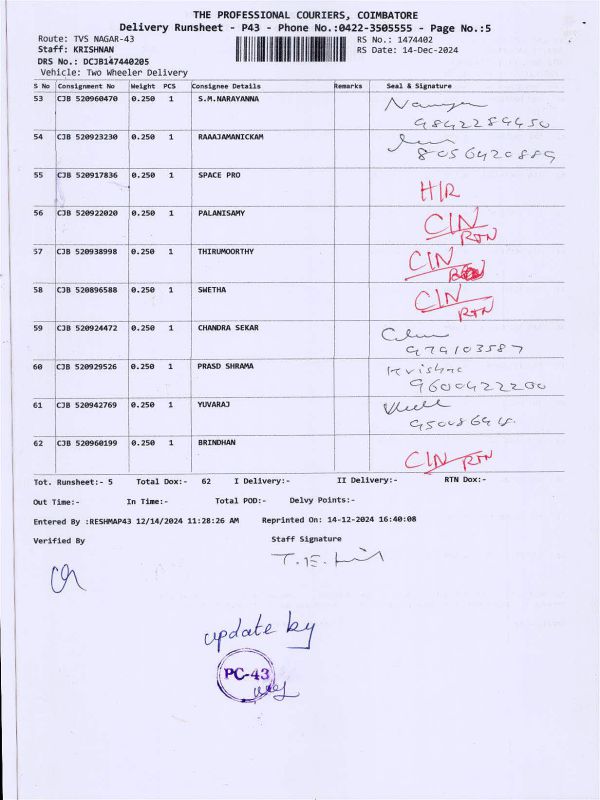 THE PROFESSIONAL COURIERS, COIMBATORE
Delivery Runsheet - P43 - Phone No.:0422-3505555 - Page No.:5
Route: TVS NAGAR-43 RS No.: 1474402
Staff: KRISHNAN RS Date: 14-Dec-2024
DRS No.: DCJB147440205
Vehicle: Two Wheeler Delivery
S No Consignment No Weight PCS Consignee Details Remarks Seal & Signature
53 CJB 520960470 0.250 1 S.M.NARAYANNA
9842284450
54 CJB 520923230 0.250 1 RAAAJAMANICKAM
8056420889
55 CJB 520917836 0.250 1 SPACE PRO
H/R
56 CJB 520922020 0.250 1 PALANISAMY
C/N
RTN
57 CJB 520938998 0.250 1 THIRUMOORTHY
C/N
58 CJB 520896588 0.250 1 SWETHA
C/N
RTN
59 CJB 520924472 0.250 1 CHANDRA SEKAR
979103587
60 CJB 520929526 0.250 1 PRASD SHRAMA
Krishna
9600422200
61 CJB 520942769 0.250 1 YUVARAJ
62 CJB 520960199 0.250 1 BRINDHAN
C/N RTN
Tot. Runsheet:- 5 Total Dox:- 62 I Delivery:- II Delivery:- RTN Dox:-
Out Time:- In Time:- Total POD:- Delvy Points:-
Entered By :RESHMAP43 12/14/2024 11:28:26 AM Reprinted On: 14-12-2024 16:40:08
Verified By Staff Signature
update by
PC-43